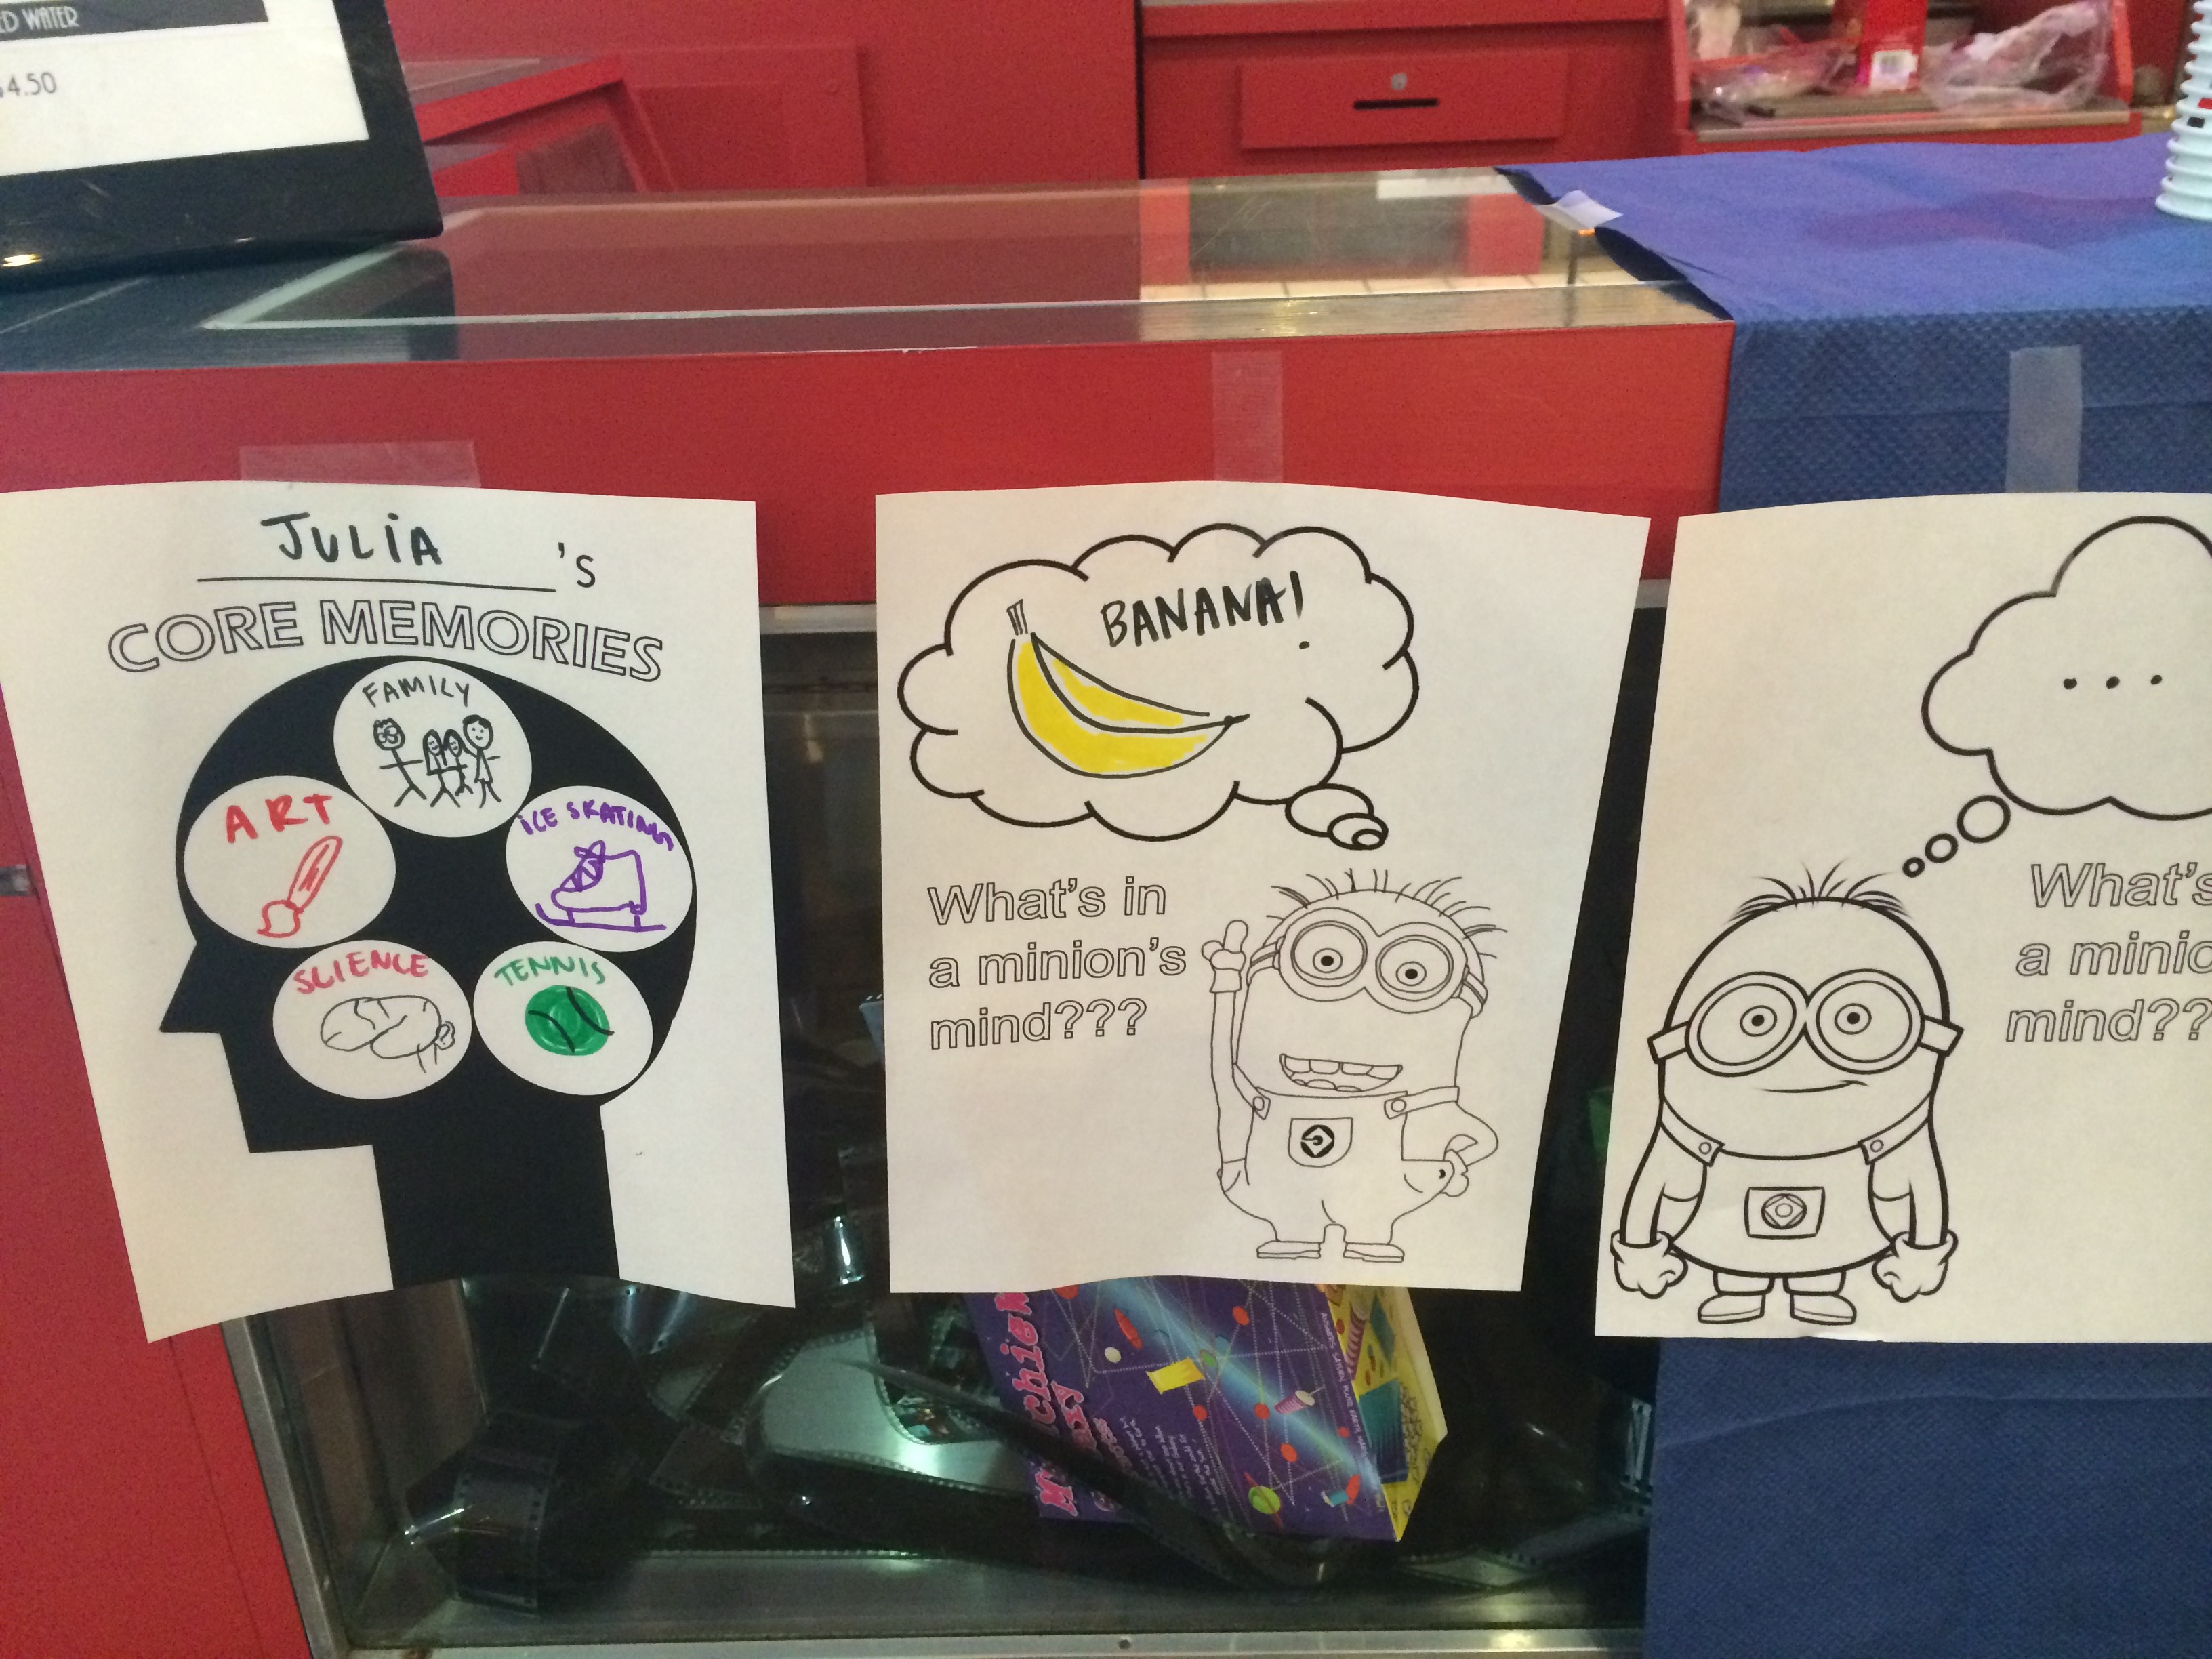 ED WATER
$4.50
JULIA 's
CORE MEMORIES
FAMILY
ART
ICE SKATING
SCIENCE
TENNIS
BANANA!
What's in
a minion's
mind???
...
What's
a minio
mind??